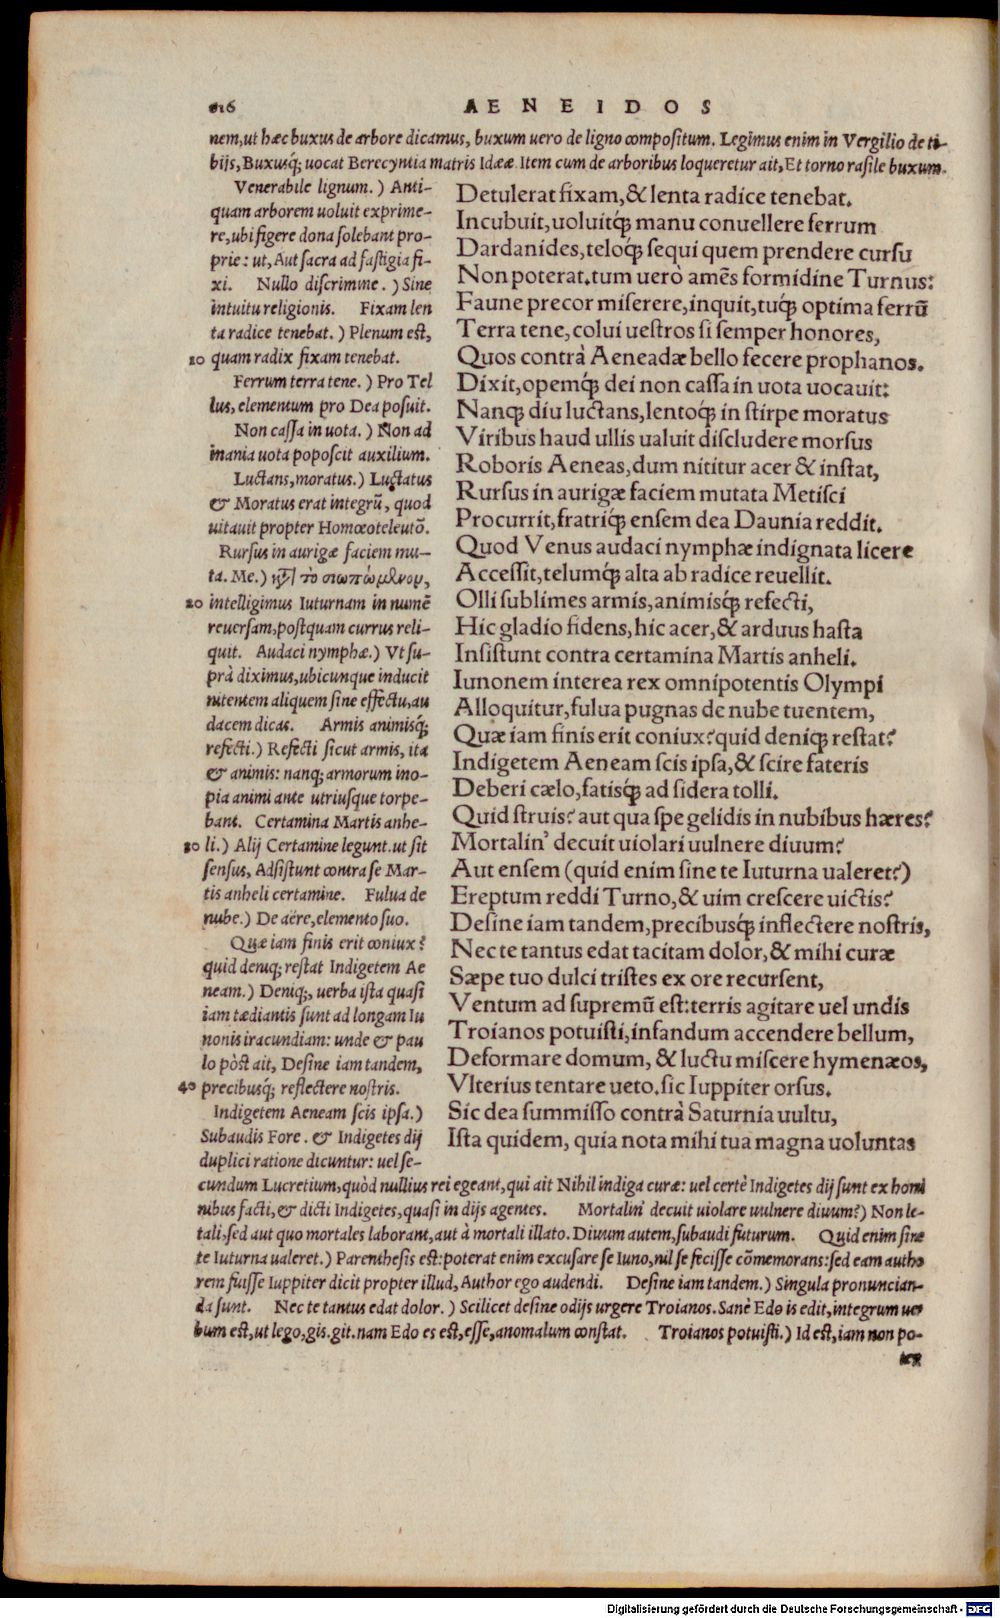 616 AENEIDOS
nem, ut hæc buxus de arbore dicamus, buxum uero de ligno compositum. Legimus enim in Vergilio de ti-
bijs, Buxusq́; uocat Berecyntia matris Idææ. Item cum de arboribus loqueretur ait, Et torno rasile buxum.
Venerabile lignum.) Anti-
quam arborem uoluit exprime-
re, ubi figere dona solebant pro-
prie: ut, Aut sacra ad fastigia fi-
xi. Nullo discrimine.) Sine
intuitu religionis. Fixam len
ta radice tenebat.) Plenum est,
10 quam radix fixam tenebat.
Ferrum terra tene.) Pro Tel
lus, elementum pro Dea posuit.
Non cassa in uota.) Non ad
inania uota poposcit auxilium.
Luctans, moratus.) Luctatus
& Moratus erat integrū, quod
uitauit propter Homœoteleutō.
Rursus in aurigæ faciem mu-
ta. Me.) κỳ τὸ σιωπώμενον,
20 intelligimus Iuturnam in numē
reuersam, postquam currus reli-
quit. Audaci nymphæ.) Vt su-
prà diximus, ubicunque inducit
nitentem aliquem sine effectu, au
dacem dicas. Armis animisq́;
refecti.) Refecti sicut armis, ita
& animis: nanq; armorum ino-
pia animi ante utriusque torpe-
bant. Certamina Martis anhe-
30 li.) Alij Certamine legunt. ut sit
sensus, Adsistunt contra se Mar-
tis anheli certamine. Fulua de
nube.) De aëre, elemento suo.
Quæ iam finis erit coniux?
quid deniq; restat Indigetem Ae
neam.) Deniq;, uerba ista quasi
iam tædiantis sunt ad longam Iu
nonis iracundiam: unde & pau
lo pòst ait, Desine iam tandem,
40 precibusq́; reflectere nostris.
Indigetem Aeneam scis ipsa.)
Subaudis Fore. & Indigetes dij
duplici ratione dicuntur: uel se-
Detulerat fixam, & lenta radice tenebat.
Incubuit, uoluitq́; manu conuellere ferrum
Dardanides, teloq́; sequi quem prendere cursu
Non poterat. tum uerò amēs formidine Turnus:
Faune precor miserere, inquit, tuq́; optima ferrū
Terra tene, colui uestros si semper honores,
Quos contrà Aeneadæ bello fecere prophanos.
Dixit, opemq́; dei non cassa in uota uocauit:
Nanq; diu luctans, lentoq́; in stirpe moratus
Viribus haud ullis ualuit discludere morsus
Roboris Aeneas, dum nititur acer & instat,
Rursus in aurigæ faciem mutata Metisci
Procurrit, fratriq́; ensem dea Daunia reddit.
Quod Venus audaci nymphæ indignata licere
Accessit, telumq́; alta ab radice reuellit.
Olli sublimes armis, animisq́; refecti,
Hic gladio fidens, hic acer, & arduus hasta
Insistunt contra certamina Martis anheli.
Iunonem interea rex omnipotentis Olympi
Alloquitur, fulua pugnas de nube tuentem,
Quæ iam finis erit coniux? quid deniq; restat?
Indigetem Aeneam scis ipsa, & scire fateris
Deberi cælo, fatisq́; ad sidera tolli.
Quid struis? aut qua spe gelidis in nubibus hæres?
Mortalin' decuit uiolari uulnere diuum?
Aut ensem (quid enim sine te Iuturna ualeret?)
Ereptum reddi Turno, & uim crescere uictis?
Desine iam tandem, precibusq́; inflectere nostris,
Nec te tantus edat tacitam dolor, & mihi curæ
Sæpe tuo dulci tristes ex ore recursent,
Ventum ad supremū est: terris agitare uel undis
Troianos potuisti, infandum accendere bellum,
Deformare domum, & luctu miscere hymenæos,
Vlterius tentare ueto. sic Iuppiter orsus.
Sic dea summisso contrà Saturnia uultu,
Ista quidem, quia nota mihi tua magna uoluntas
cundum Lucretium, quòd nullius rei egeant, qui ait Nihil indiga curæ: uel certè Indigetes dij sunt ex homi
nibus facti, & dicti Indigetes, quasi in dijs agentes. Mortalin' decuit uiolare uulnere diuum?) Non le-
tali, sed aut quo mortales laborant, aut à mortali illato. Diuum autem, subaudi futurum. Quid enim sine
te Iuturna ualeret.) Parenthesis est: poterat enim excusare se Iuno, nil se fecisse cōmemorans: sed eam autho
rem fuisse Iuppiter dicit propter illud, Author ego audendi. Desine iam tandem.) Singula pronuncian-
da sunt. Nec te tantus edat dolor.) Scilicet desine odijs urgere Troianos. Sanè Edo is edit, integrum uer
bum est, ut lego, gis. git. nam Edo es est, esse, anomalum constat. Troianos potuisti.) Id est, iam non po-
ter
Digitalisierung gefördert durch die Deutsche Forschungsgemeinschaft - DFG